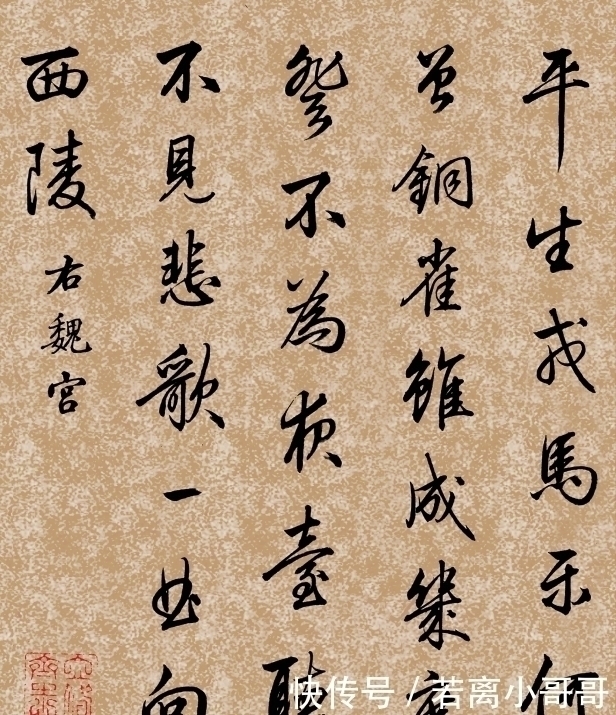 平生戎馬乐何
曾銅雀雖成幾
登不為夜臺聽
不見悲歌一曲向
西陵
右魏宮
快传号 / 若离小哥哥